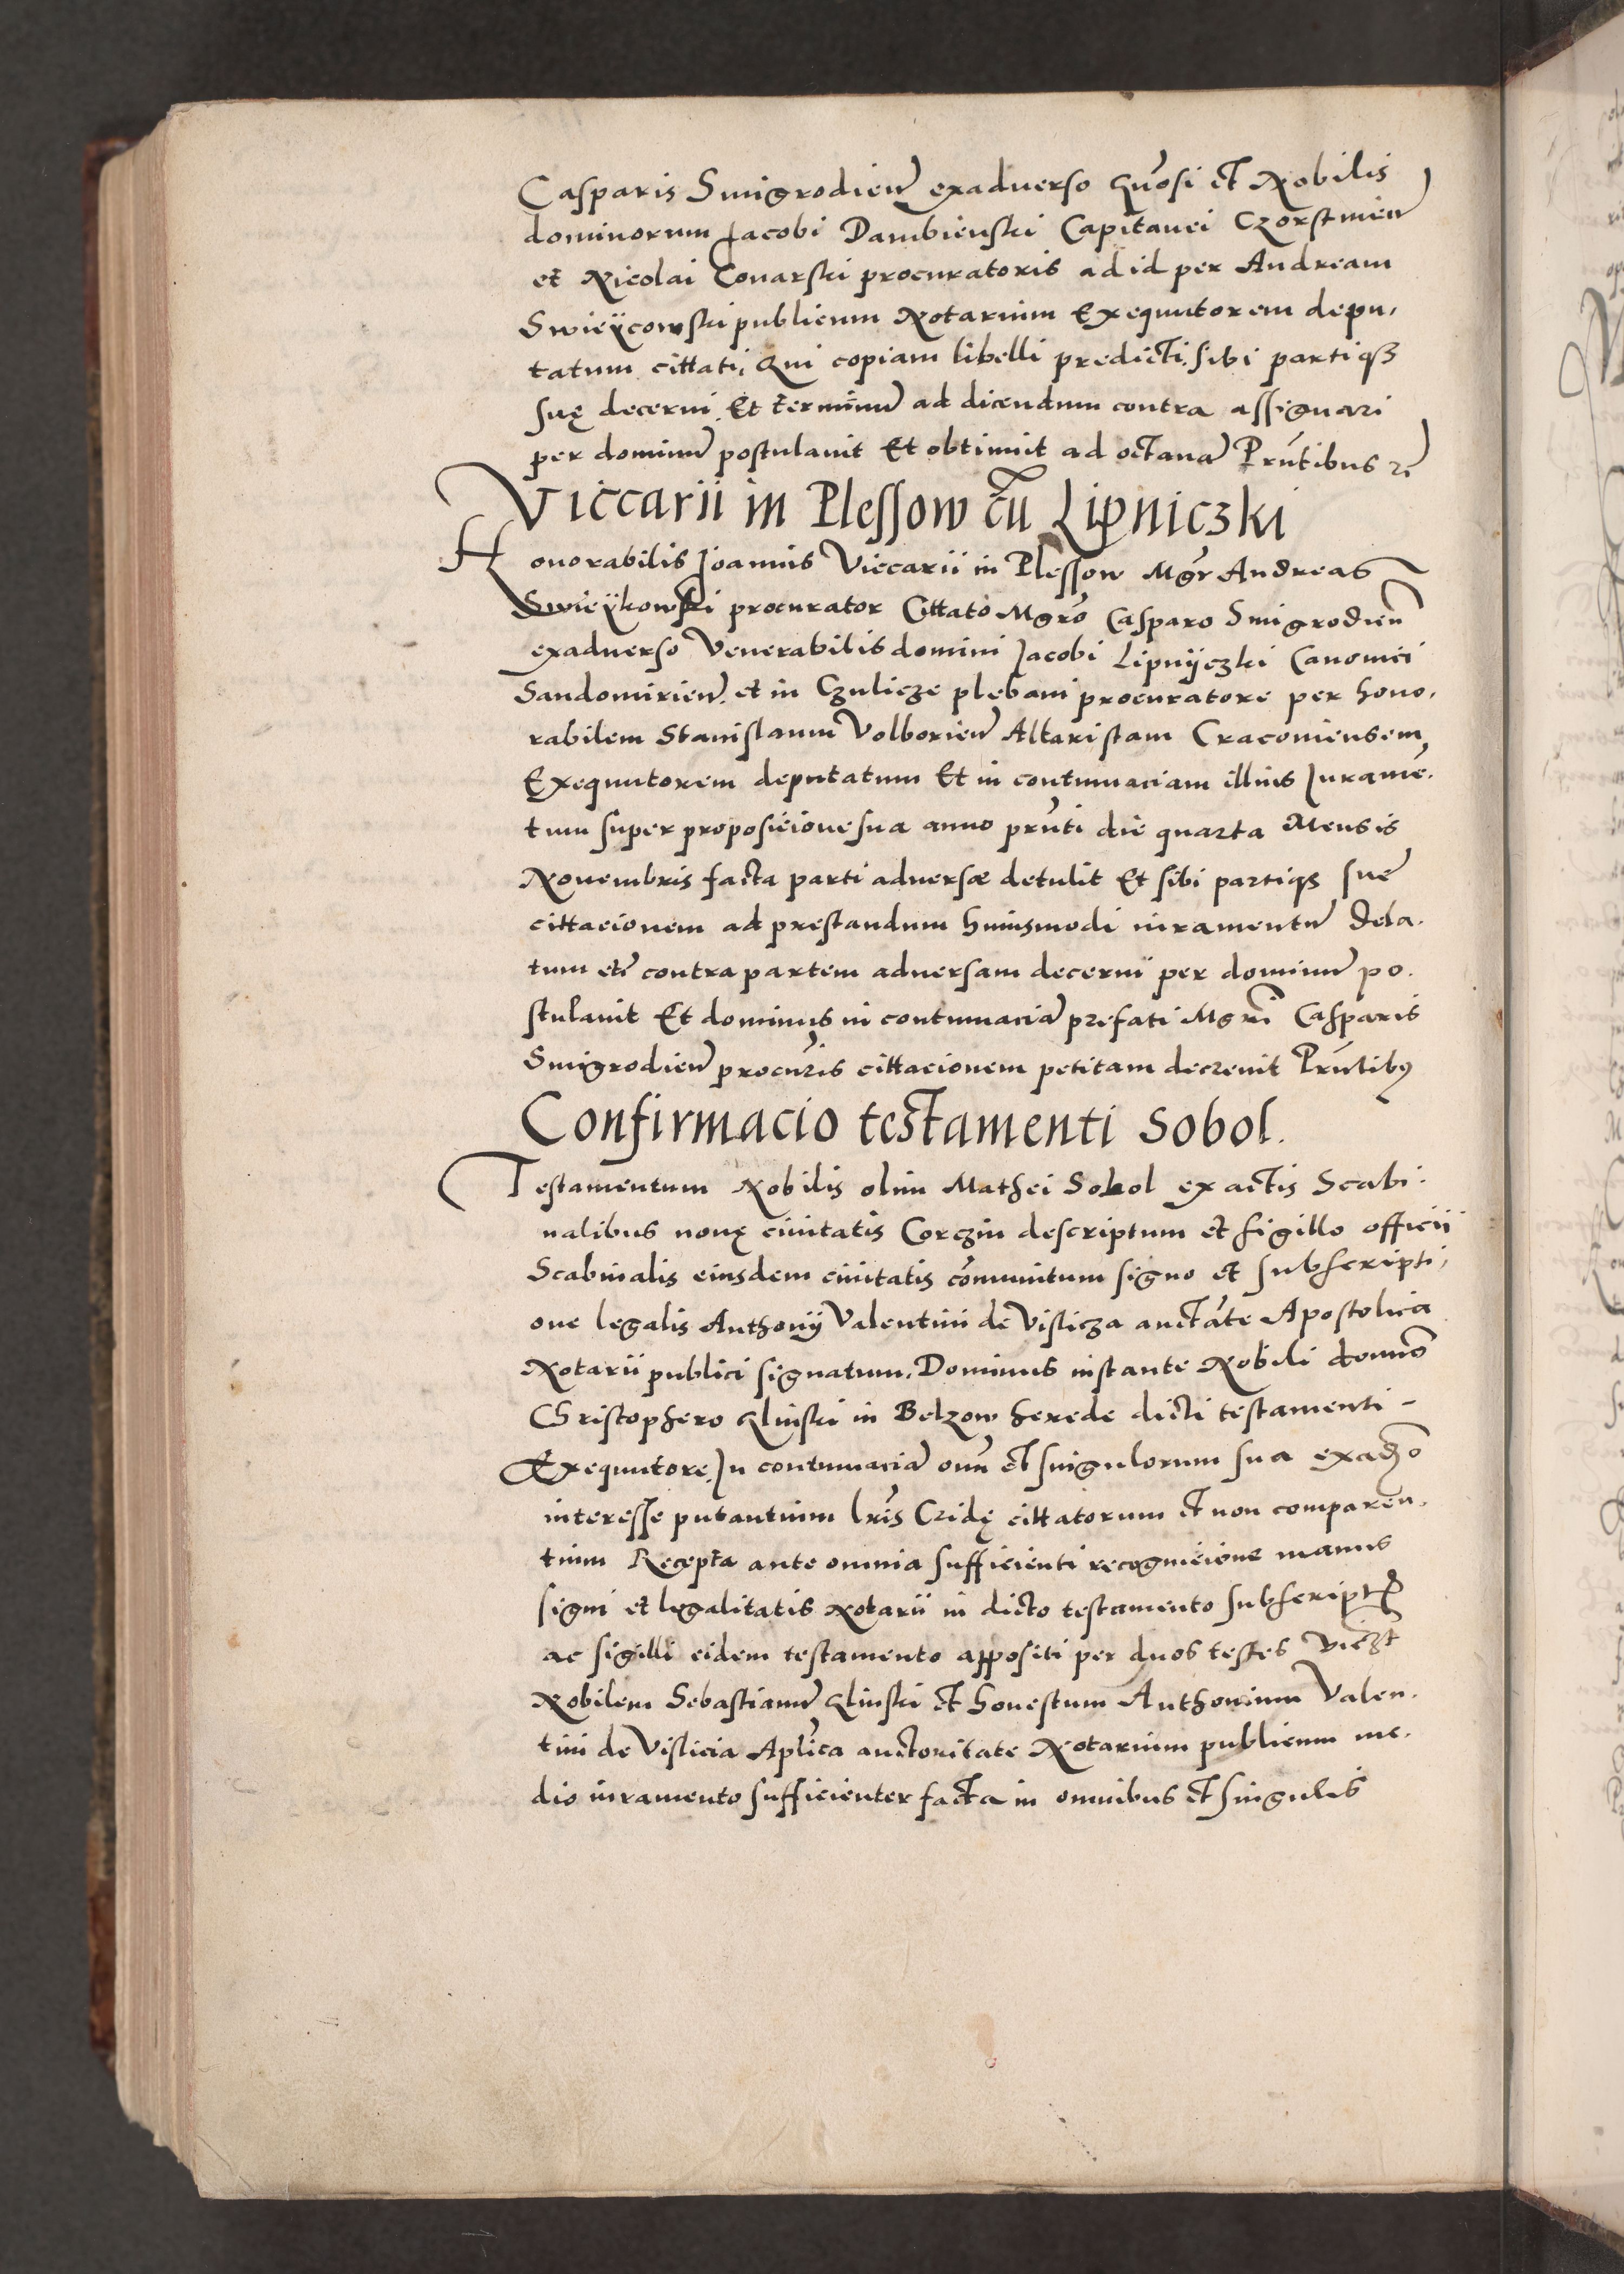 Casparis Smigrodien̄ exaduerso Gn̄osi et Nobilis
dominorum Jacobi Dambienski Capitanei Czorstinen̄
et Nicolai Conarski procuratoris ad id per Andream
Swieÿcowski publicum Notarium Exequutorem depu,
tatum cittati, Qui copiam libelli predicti sibi partiqȝ
suę decerni Et terminū ad dicendum contra assignari
per dominū postulauit Et obtinuit ad octauā Prn̄tibus
Viccarii in Plessow cū Lipniczki
Honorabilis Joannis Viccarii in Plessow Mgr̄ Andreas
Swieÿkowski procurator Cittato Mgrō Casparo Smigrodien̄
exaduerso Venerabilis domini Jacobi Lipnÿczki Canonici
Sandomirien̄. et in Czulicze plebani procuratore per hono,
rabilem Stanislaum Volborien̄ Altaristam Cracouiensem
Exequutorem deputatum Et in contumaciam illius Juramē,
tum super proposicione sua anno prn̄ti die quarta Mensis
Nouembris facta parti aduersæ detulit Et sibi partiqȝ sue
cittacionem ad prestandum huiusmodi iuramentū dela,
tum etc̄ contra partem aduersam decerni per dominū po,
stulauit Et dominus in contumaciā prefati Mgrī Casparis
Smigrodien̄ procūris cittacionem petitam decreuit Prn̄tibꝫ
Confirmacio testamenti Sobol.
Testamentum Nobilis olim Mathei Sobol ex actis Scabi,
nalibus nouę ciuitatis Corczin descriptum et sigillo officii
Scabinalis eiusdem ciuitatis cōmunitum signo et subscripti,
one legalis Anthonÿ Valentini de Vislicza auctāte Apostolica
Notarii publici signatum. Dominus instante Nobili domīo
Christophero Glinski in Belzow herede dicti testamenti -
Exequutore, In contumaciā oīm et singulorum sua exadꝫo
interesse putantium lrīs Cridę cittatorum et non comparen,
tium Recepta ante omnia sufficienti recognicione manus
signi et legalitatis Notarii in dicto testamento subscripti
ac sigilli eidem testamento appositi per duos testes viczt
Nobilem Sebastianū Glinski et honestum Anthonium Valen,
tini de Vislicia Aplīca auctoritate Notarium publicum me,
dio iuramento sufficienter facta in omnibus et singulis